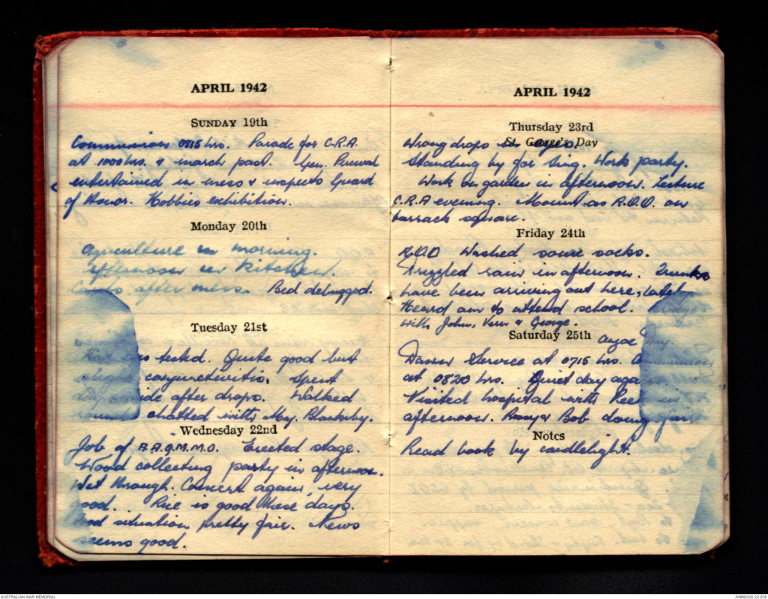 APRIL 1942
SUNDAY 19th
Communion 0815 hrs. Parade for C.R.A.
at 1000 hrs. & march past. Gen.
entertained in mess & inspects Guard
of Honor. Hobbies exhibition.
Monday 20th
Agriculture in morning.
Afternoon in kitchen.
after mess. Bed debugged.
Tuesday 21st
tested. Quite good but
slight conjunctivitis. Spent
after drops. Walked
chatted with Maj.
Wednesday 22nd
Job of R.A.Q.M.M.O. Erected stage.
Wood collecting party in afternoon.
Wet through. Concert again, very
good. Rice is good these days.
Food situation pretty fair. News
seems good.
APRIL 1942
Thursday 23rd
St. George's Day
Wrong drops in eyes.
Standing by for Brig. Work party.
Work on garden in afternoon. Lecture
C.R.A evening. Mount as R.O.O. on
barrack square.
Friday 24th
R.O.O Washed some socks.
Drizzled rain in afternoon. Trucks
have been arriving out here, lately.
Heard am to attend school.
with John, Vern & George.
Saturday 25th Anzac Day
Dawn Service at 0715 hrs.
at 0820 hrs. Quiet day again
Visited hospital with
afternoon. & Bob doing
Notes
Read book by candlelight.
AUSTRALIAN WAR MEMORIAL